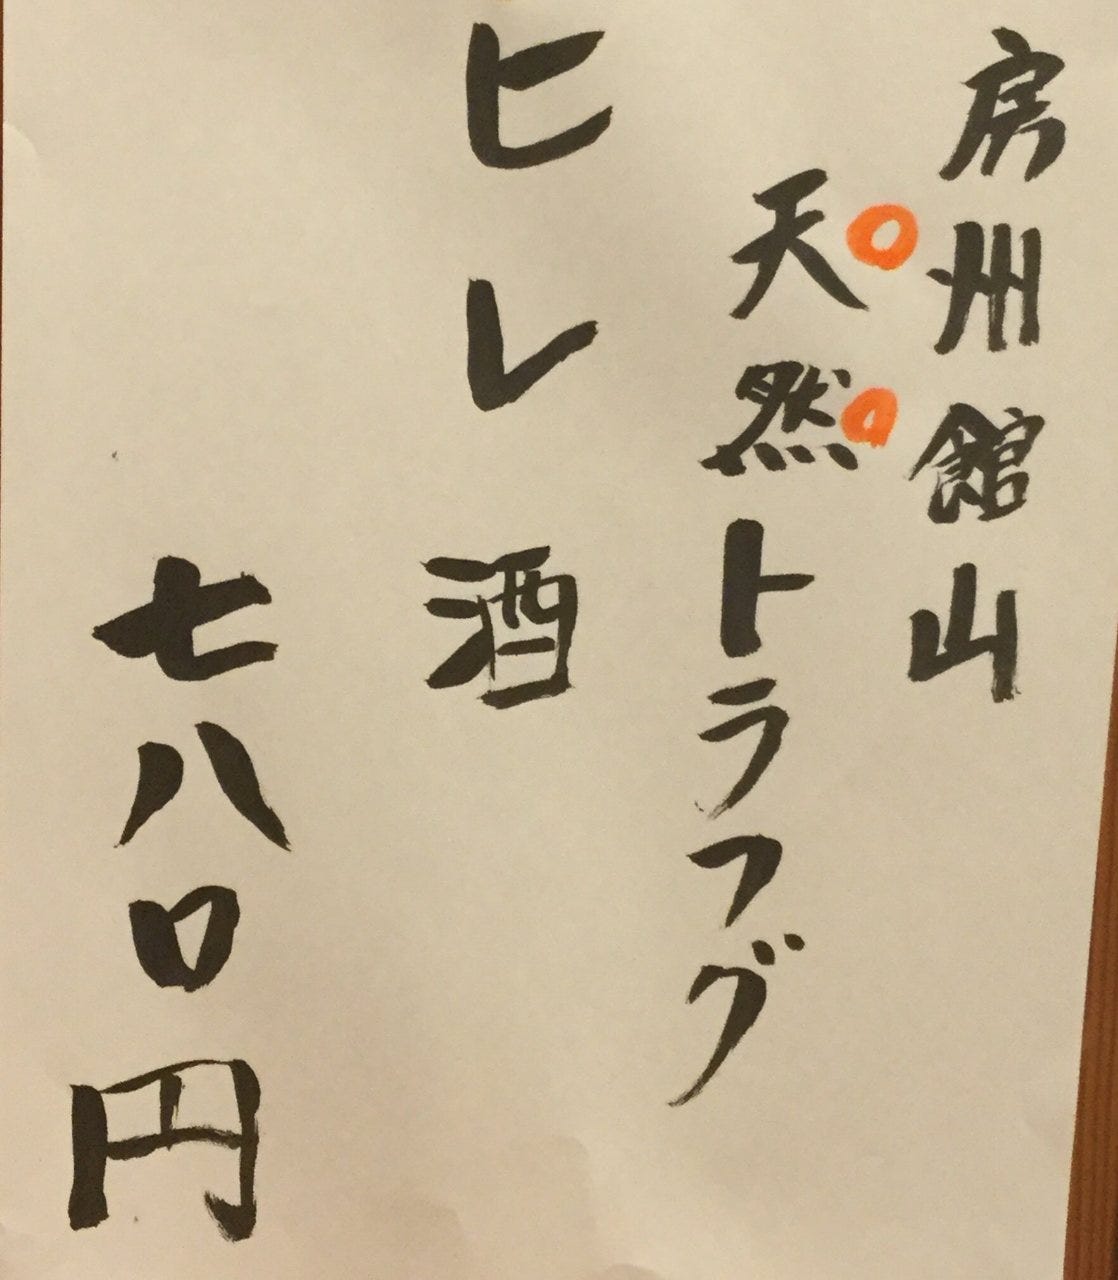 房州館山
天然トラフグ
ヒレ酒
七八〇円